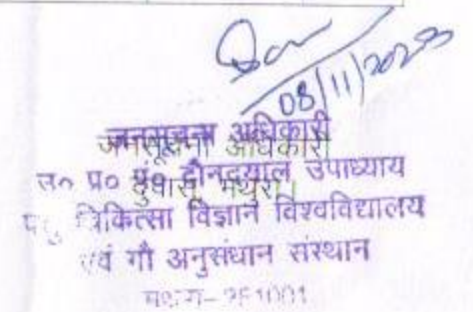 08/11/2023
जनसूचना अधिकारी
जनसूचना अधिकारी
उ० प्र० पं० दीनदयाल उपाध्याय
दुवासू, मथुरा।
चिकित्सा विज्ञान विश्वविद्यालय
एवं गौ अनुसंधान संस्थान
मथुरा- 281001